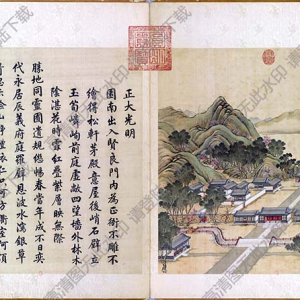 正大光明
園南出入賢良門內為正衙不雕不
繪得松軒茅殿意屋後峭石壁立
玉筍嶙峋前庭虛敞四望墻外林木
陰湛花時霏紅疊紫層映無際
勝地同靈囿遺規繼暢春當年成不日奕
代永居辰義府庭羅壁恩波水瀉銀草
青思示儉山靜體依仁只可方衢室何須